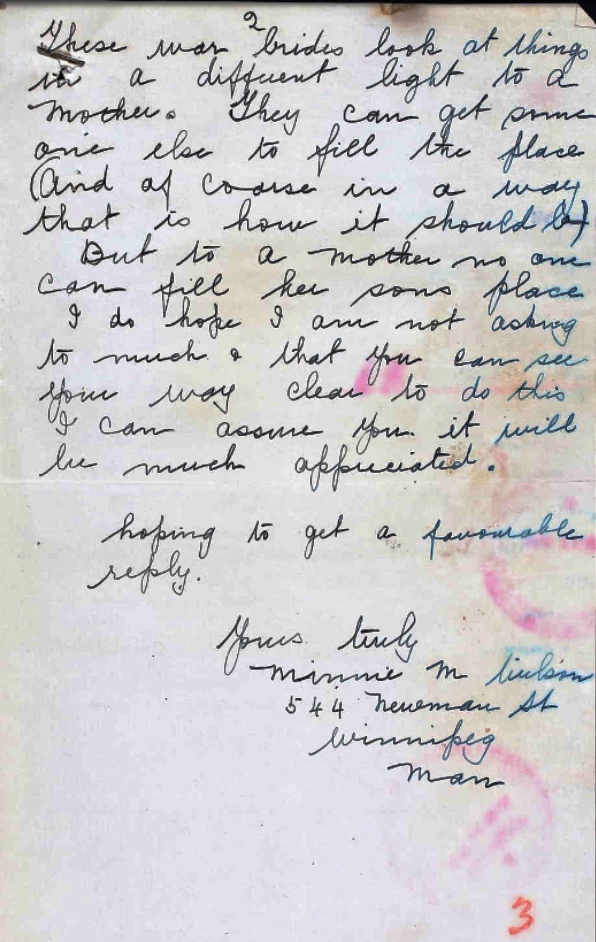 2
These war brides look at things
in a different light to a
Mother. They can get some
one else to fill the place
(And of coarse in a way
that is how it should be)
But to a Mother no one
can fill her sons place
I do hope I am not asking
to much & that you can see
your way clear to do this
I can assure you it will
be much appreciated.
hoping to get a favourable
reply.
Yours truly
Minnie M
544 Newman St
Winnipeg
Man
3